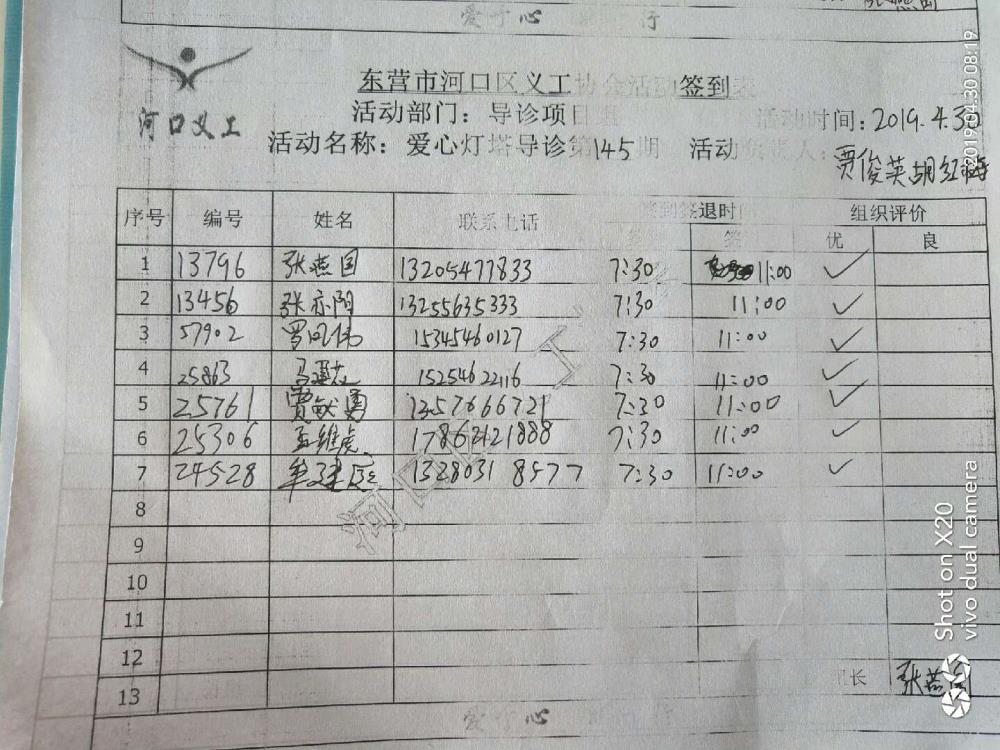 爱于心 行
河口义工
东营市河口区义工协会活动签到表
活动部门：导诊项目
活动时间：2019.4.30
活动名称：爱心灯塔导诊第145期 活动负责人：贾俊英胡红梅
序号 编号 姓名 联系电话 签到签退时间 组织评价
签 优 良
1 13796 张燕国 13205477833 7:30 11:00 ✓
2 13456 张亦阳 13255635333 7:30 11:00 ✓
3 57902 罗风伟 15345460127 7:30 11:00 ✓
4 25863 15254622116 7:30 11:00 ✓
5 25761 贾献勇 1357666721 7:30 11:00 ✓
6 25306 孟维虎 17863121888 7:30 11:00 ✓
7 24528 牟建臣 13280318577 7:30 11:00 ✓
8
9
10
11
12
13
长 张燕国
河口 工
爱于心 行
2019.04.30 08:19
Shot on X20
vivo dual camera